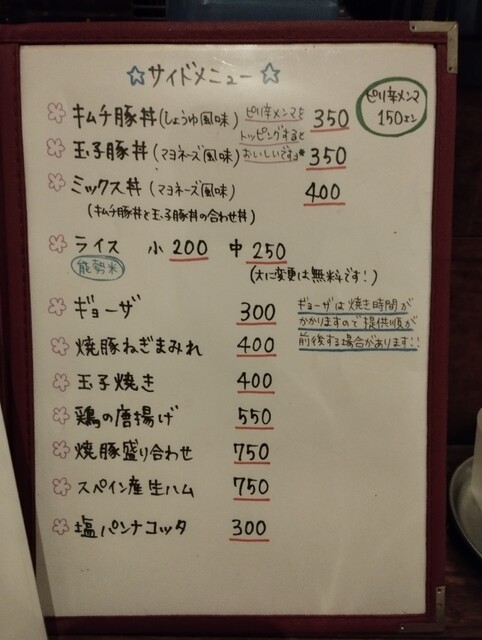 ☆サイドメニュー☆
キムチ豚丼(しょうゆ風味) 350
玉子豚丼(マヨネーズ風味) 350
ピリ辛メンマを
トッピングすると
おいしいですョ
ピリ辛メンマ
150エン
ミックス丼(マヨネーズ風味) 400
(キムチ豚丼と玉子豚丼の合わせ丼)
ライス 小 200 中 250
能勢米
(大に変更は無料です!)
ギョーザ 300
ギョーザは焼き時間が
かかりますので提供順が
前後する場合があります!!
焼豚ねぎまみれ 400
玉子焼き 400
鶏の唐揚げ 550
焼豚盛り合わせ 750
スペイン産生ハム 750
塩パンナコッタ 300